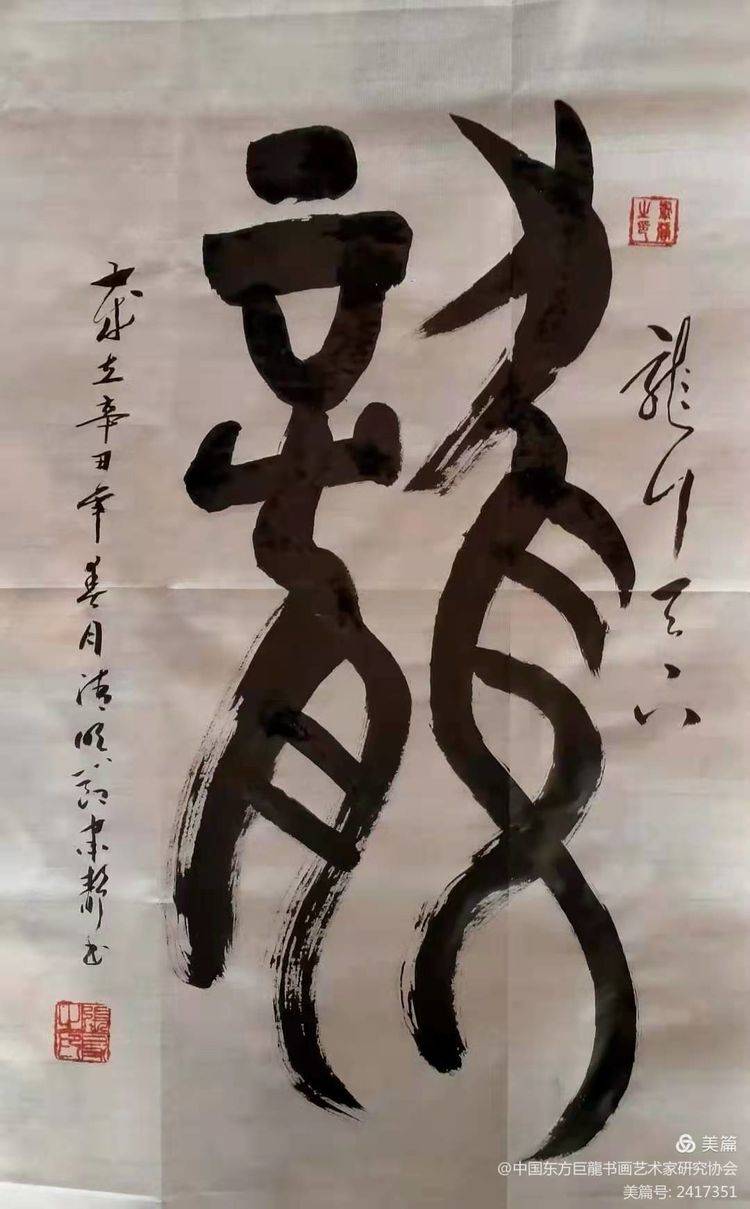 龍
龍行天下
岁在辛丑年春月清明节
美篇
@中国东方巨龍书画艺术家研究协会
美篇号: 2417351